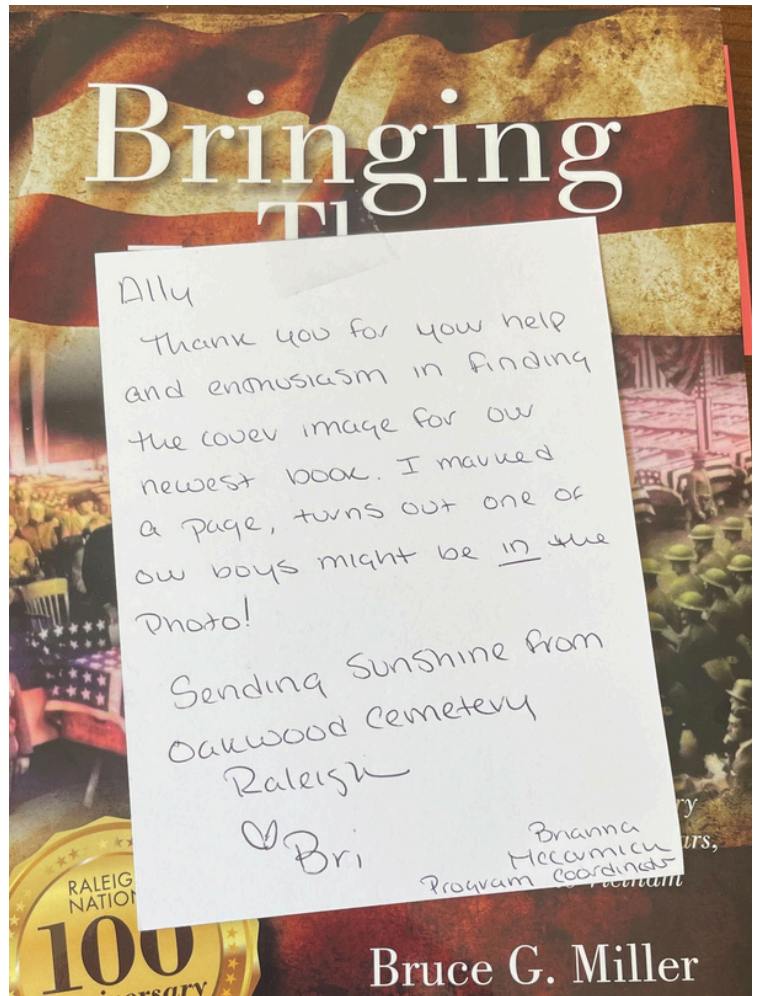 Bringing
Ally
Thank you for your help
and enthusiasm in finding
the cover image for our
newest book. I marked
a page, turns out one of
our boys might be in the
photo!
Sending Sunshine from
Oakwood Cemetery
Raleigh
♡ Bri
Brianna
McCormick
Program Coordinator
ry
ars,
Vietnam
RALEIG
NATION
100
Bruce G. Miller